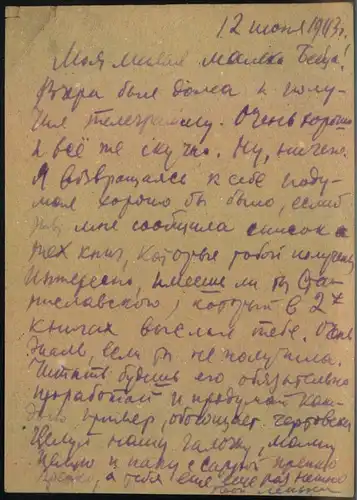 12 июня 1943 г.
Моя милая малека Беца!
Вчера был дома и полу-
чил телеграмму. Очень хорошо
и всё же скучно. Ну, ничего.
Я возвращаясь к себе поду-
мал хорошо бы было, еслиб
ты мне сообщила список
тех книг, которые тобой получены
Интересно, имеешь ли ты Ста-
ниславского, который в 2х
книгах выслал тебе. Очень
жаль, если ты не получила.
Читать будешь его обязательно
проработай и продумай каж-
дый пример, обогощает чертовски
Целую нашу, маму
Целую и папу с Сарой крепко
крепко, а тебя еще еще раз нежно
твой